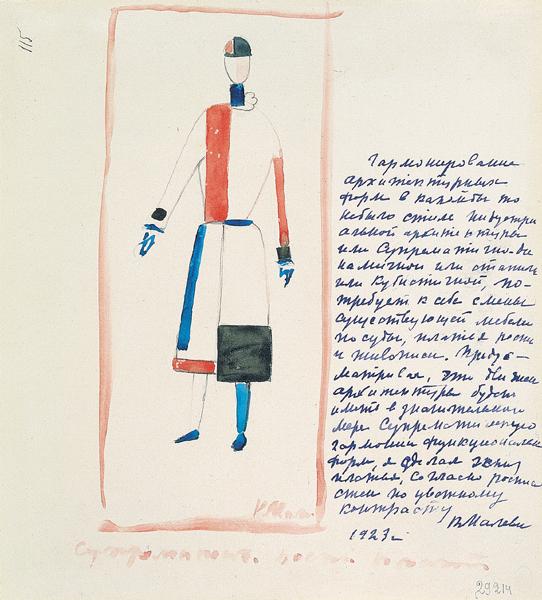 115
Гармонирование
архитектурных
форм в какой бы то
небыло стиле индустри
альной архитектуры
или Супрематично-ди
намичной или статич
или Кубистичной, по-
требует к себе смены
существующей мебели
посуды, платья росписи
и живописи. Предус-
матривая, что движен
архитектуры будет
иметь в значительной
мере Супрематическую
гармонию функциональн
форм, я сделал эскиз
платья, согласно росписи
стен по цветному
контрасту
КМал
КМалеви
1923 г
Супрематич. 
29214